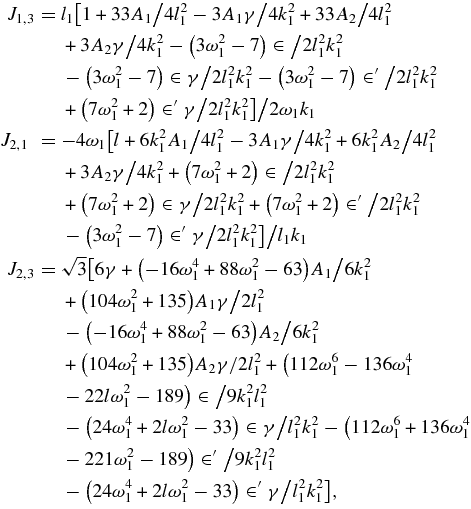 J_{1,3} = l_1[1 + 33A_1/4l_1^2 − 3A_1γ/4k_1^2 + 33A_2/4l_1^2
+ 3A_2γ/4k_1^2 − (3ω_1^2 − 7) ∈ /2l_1^2k_1^2
− (3ω_1^2 − 7) ∈ γ/2l_1^2k_1^2 − (3ω_1^2 − 7) ∈′ /2l_1^2k_1^2
+ (7ω_1^2 + 2) ∈′ γ/2l_1^2k_1^2]/2ω_1k_1
J_{2,1} = −4ω_1[l + 6k_1^2A_1/4l_1^2 − 3A_1γ/4k_1^2 + 6k_1^2A_2/4l_1^2
+ 3A_2γ/4k_1^2 + (7ω_1^2 + 2) ∈ /2l_1^2k_1^2
+ (7ω_1^2 + 2) ∈ γ/2l_1^2k_1^2 + (7ω_1^2 + 2) ∈′ /2l_1^2k_1^2
− (3ω_1^2 − 7) ∈′ γ/2l_1^2k_1^2]/l_1k_1
J_{2,3} = √3[6γ + (−16ω_1^4 + 88ω_1^2 − 63)A_1/6k_1^2
+ (104ω_1^2 + 135)A_1γ/2l_1^2
− (−16ω_1^4 + 88ω_1^2 − 63)A_2/6k_1^2
+ (104ω_1^2 + 135)A_2γ/2l_1^2 + (112ω_1^6 − 136ω_1^4
− 22lω_1^2 − 189) ∈ /9k_1^2l_1^2
− (24ω_1^4 + 2lω_1^2 − 33) ∈ γ/l_1^2k_1^2 − (112ω_1^6 + 136ω_1^4
− 221ω_1^2 − 189) ∈′ /9k_1^2l_1^2
− (24ω_1^4 + 2lω_1^2 − 33) ∈′ γ/l_1^2k_1^2],